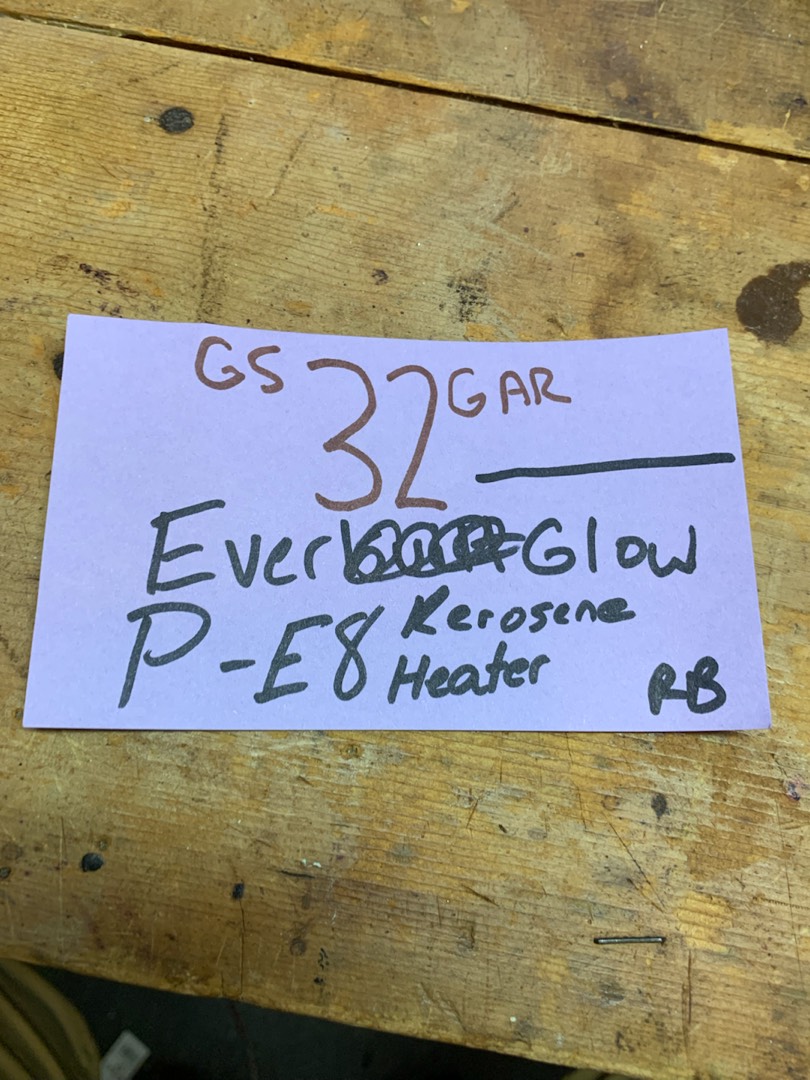 GS 32 GAR
Ever Glow
P-E8 Kerosene
Heater RB